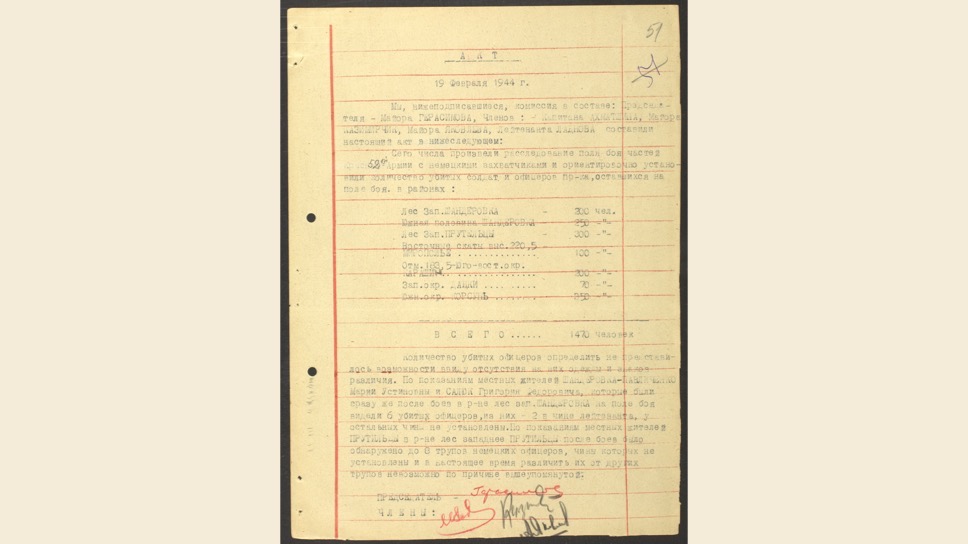 51
А К Т
19 Февраля 1944 г.
Мы, нижеподписавшиеся, комиссия в составе: Председа-
теля - Майора ГЕРАСИМОВА, Членов : - Капитана Майора
Майора Лейтенанта составили
настоящий акт в нижеследующем:
Сего числа произвели расследование поля боя частей
52й Армии с немецкими захватчиками и ориентировочно устано-
вили количество убитых солдат и офицеров пр-ка,оставшихся на
поле боя. в районах :
Лес Зап.ШАНДЕРОВКА - 200 чел.
Южная половина ШАНДЕРОВКА - 250 -"-
Лес Зап. - 300 -"-
Восточные скаты выс.220,5 -
.............. 100 -"-
Отм.183,5-Юго-вост.окр.
.............. 200 -"-
Зап.окр. .......... 70 -"-
окр. КОРСУНЬ .......... 350 -"-
В С Е Г О ...... 1470 человек
Количество убитых офицеров определить не представи-
лось возможности ввиду отсутствия на них одежды и знаков
различия. По показаниям местных жителей ШАНДЕРОВКА-
Марии Устиновны и Григория Федоровича, которые были
сразу же после боев в р-не лес зап.ШАНДЕРОВКА на поле боя
видели 6 убитых офицеров,из них - 2 в чине лейтенанта, у
остальных чины не установлены.По показаниям местных жителей
в р-не лес западнее после боев было
обнаружено до 8 трупов немецких офицеров, чины которых не
установлены и в настоящее время различить их от других
трупов невозможно по причине вышеупомянутой.
ПРЕДСЕДАТЕЛЬ -
Ч Л Е Н Ы :